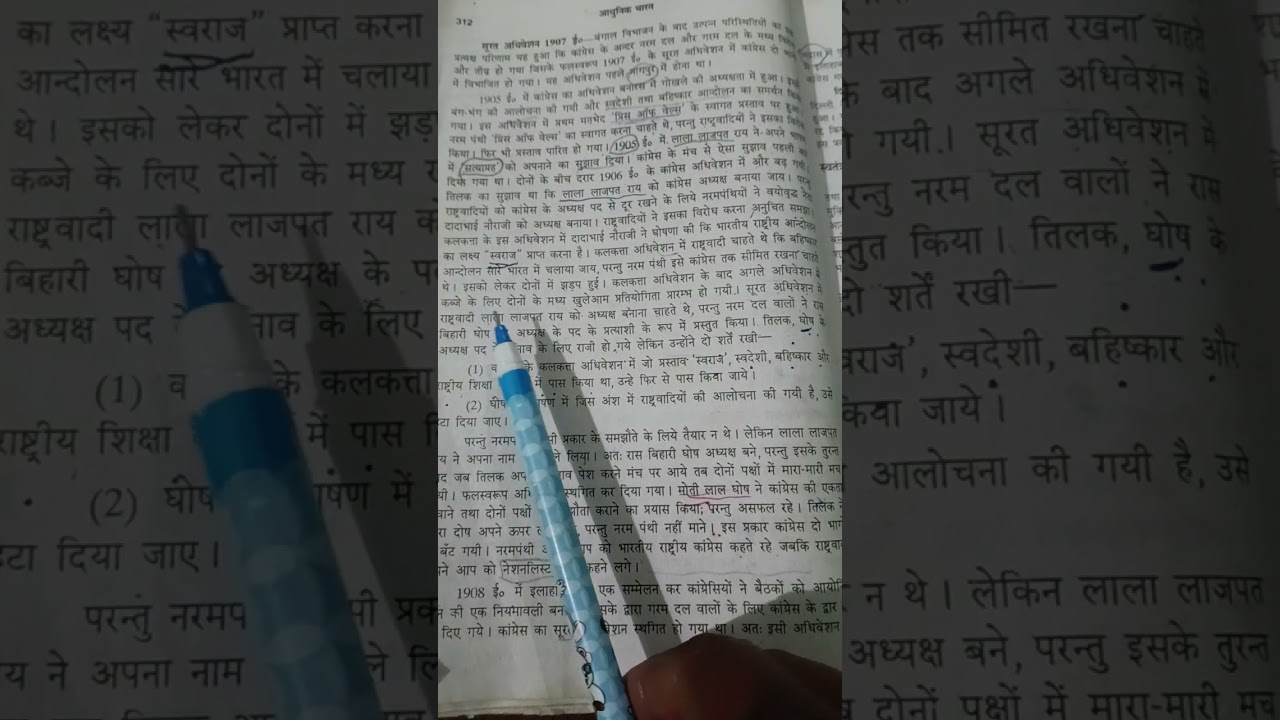 312
आधुनिक भारत
सूरत अधिवेशन 1907 ई०—बंगाल विभाजन के बाद उत्पन्न परिस्थितियों का
प्रत्यक्ष परिणाम यह हुआ कि कांग्रेस के अन्दर नरम दल और गरम दल के मध्य
और तीव्र हो गया जिसके फलस्वरूप 1907 ई० के सूरत अधिवेशन में कांग्रेस दो
में विभाजित हो गया। यह अधिवेशन पहले नागपुर में होना था।
1905 ई० में कांग्रेस का अधिवेशन बनारस में गोखले की अध्यक्षता में हुआ।
बंग-भंग की आलोचना की गयी और स्वदेशी तथा बहिष्कार आन्दोलन का समर्थन
गया। इस अधिवेशन में प्रथम मतभेद 'प्रिंस ऑफ वेल्स' के स्वागत प्रस्ताव पर
नरम पंथी 'प्रिंस ऑफ वेल्स' का स्वागत करना चाहते थे, परन्तु राष्ट्रवादियों ने इसका
किया। फिर भी प्रस्ताव पारित हो गया। 1905 ई० में लाला लाजपत राय ने अपने
में 'सत्याग्रह' को अपनाने का सुझाव दिया। कांग्रेस के मंच से ऐसा सुझाव पहली
दिया गया था। दोनों के बीच दरार 1906 ई० के कांग्रेस अधिवेशन में और बढ़
तिलक का सुझाव था कि लाला लाजपत राय को कांग्रेस अध्यक्ष बनाया जाय।
राष्ट्रवादियों को कांग्रेस के अध्यक्ष पद से दूर रखने के लिये नरमपंथियों ने वयोवृद्ध
दादाभाई नौराजी को अध्यक्ष बनाया। राष्ट्रवादियों ने इसका विरोध करना अनुचित समझा
कलकत्ता के इस अधिवेशन में दादाभाई नौराजी ने घोषणा की कि भारतीय राष्ट्रीय आन्दोलन
का लक्ष्य "स्वराज" प्राप्त करना है। कलकत्ता अधिवेशन में राष्ट्रवादी चाहते थे कि बहिष्कार
आन्दोलन सारे भारत में चलाया जाय, परन्तु नरम पंथी इसे कांग्रेस तक सीमित रखना चाहते
थे। इसको लेकर दोनों में झड़प हुई। कलकत्ता अधिवेशन के बाद अगले अधिवेशन में
कब्जे के लिए दोनों के मध्य खुलेआम प्रतियोगिता प्रारम्भ हो गयी। सूरत अधिवेशन में
राष्ट्रवादी लाला लाजपत राय को अध्यक्ष बनाना चाहते थे, परन्तु नरम दल वालों ने रास
बिहारी घोष अध्यक्ष के पद के प्रत्याशी के रूप में प्रस्तुत किया। तिलक, घोष के
अध्यक्ष पद नाव के लिए राजी हो गये लेकिन उन्होंने दो शर्तें रखी—
(1) व के कलकत्ता अधिवेशन में जो प्रस्ताव 'स्वराज', स्वदेशी, बहिष्कार और
राष्ट्रीय शिक्षा में पास किया था, उन्हे फिर से पास किया जाये।
(2) घोष षण में जिस अंश में राष्ट्रवादियों की आलोचना की गयी है, उसे
हटा दिया जाए।
परन्तु नरमपं पी प्रकार के समझौते के लिये तैयार न थे। लेकिन लाला लाजपत
य ने अपना नाम ले लिया। अतः रास बिहारी घोष अध्यक्ष बने, परन्तु इसके तुरन्त
द जब तिलक अप पेश करने मंच पर आये तब दोनों पक्षों में मारा-मारी मच
यी। फलस्वरूप अधि स्थगित कर दिया गया। मोती लाल घोष ने कांग्रेस की एकता
तथा दोनों पक्षों कराने का प्रयास किया; परन्तु असफल रहे। तिलक
रा दोष अपने ऊपर परन्तु नरम पंथी नहीं माने। इस प्रकार कांग्रेस दो
बँट गयी। नरमपंथी को भारतीय राष्ट्रीय कांग्रेस कहते रहे जबकि
ने आप को नेशनलिस्ट कहने लगे।
1908 ई० में एक सम्मेलन कर कांग्रेसियों ने बैठकों को
की एक नियमावली के द्वारा गरम दल वालों के लिए कांग्रेस के द्वार
दिए गये। कांग्रेस का स्थगित हो गया था। अतः इसी अधिवेशन